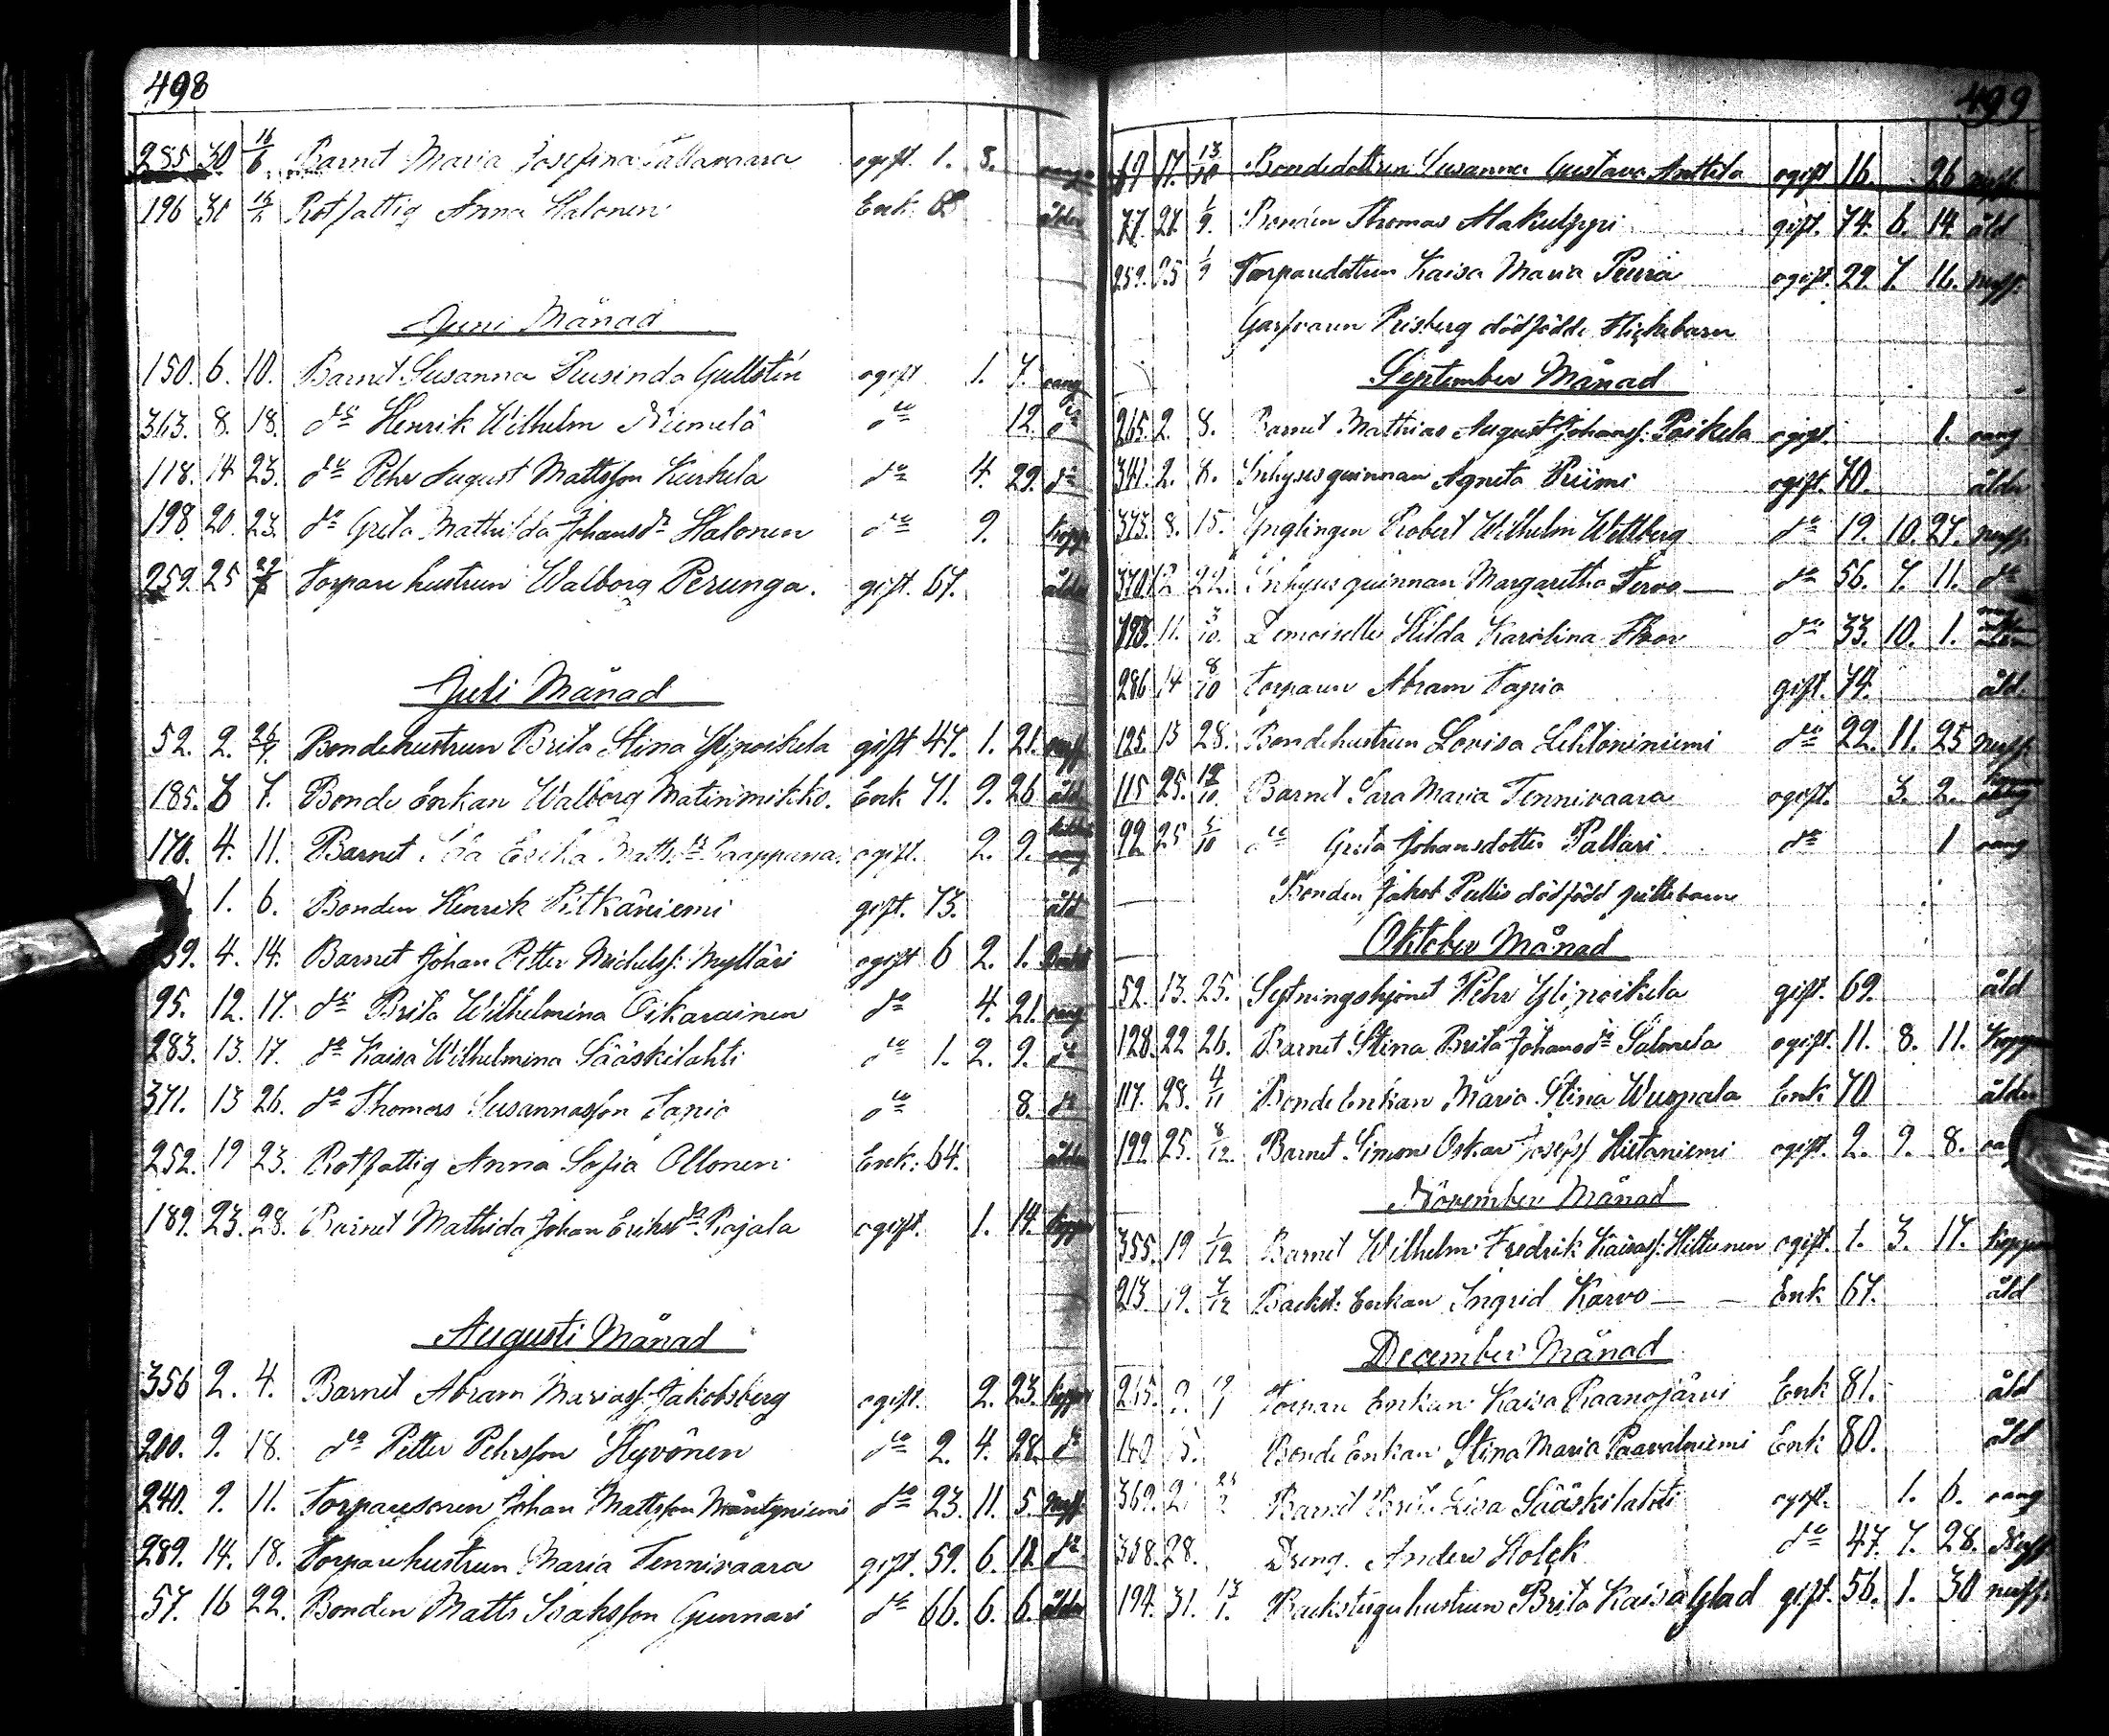 498
285. 30 16/6. Barnet Maria Josefina ogift. 1. 8.
196 30 16/2 Rotfattig Anna Halonen Enk. 68 ålder
Juni Månad
150. 6. 10. Barnet Susanna Gullstén ogift 1. 7. rang
363. 8. 18. do Henrik Wilhelm Niemelä do 12. do
118. 14 23. do Pehr August Mattsson Kurkela do 4. 29. do
198. 20. 23. do Greta Mathilda Johansdr Halonen do 9. kopp
259. 25 Torpare hustrun Walborg Perunga. gift. 67. ålder
Juli Månad
52. 2. Bondehustrun Brita Stina Ylipoikela gift 47. 1. 21.
185. 7. Bonde Enkan Walborg Matinmikko. Enk 71. 9. 26 åld
170. 4. 11. Barnet ogift. 2. 9.
1. 6. Bonden Henrik Pitkäniemi gift. 73. åld
4. 14. Barnet Johan Petter Michelss: Mylläri ogift 6 2. 1.
95. 12. 17. do Brita Wilhelmina Oikarainen do 4. 21. rang
283. 13. 17. do Kaisa Wilhelmina Sääskilahti do 1. 2. 9. do
371. 13 26. do Thomas Susannasson Tapio do 8. do
252. 19 23. Rotfattig Anna Sofia Ollonen Enk: 64. ålder
189. 23. 28. Barnet Mathida Johan Eriksdr Rajala ogift. 1. 14. kopp
Augusti Månad
356 2. 4. Barnet Abram Mariass. Jakobsberg ogift. 2. 23. kopp
200. 9. 18. do Petter Pehrsson Hyvönen do 2. 4. 28. do
240. 9. 11. Torparesonen Johan Mattsson Mäntyniemi do 23. 11. 5. nuff.
289. 14. 18. Torparehustrun Maria Tennivaara gift. 59. 6. 12. do
57. 16 22. Bonden Matts Isaksson Gunnari do 66. 6. 6. ålder
499
69 17. 13/10 Bondedottren Susanna Gustava Anttila ogift 16. 26 nuff.
77. 27. 1/9. Bonden Thomas Alakulppi gift. 74. 6. 14. åld
259. 25 1/9 Torparedottren Kaisa Maria Peura ogift. 29. 7. 16. nuff.
Garfvaren Frisberg dödfödde flickebarn
September Månad
265. 2. 8. Barnet Mathias August Johanss. Poikela ogift. 1. rang
341. 2. 8. Inhyses quinnan Agneta Priimi ogift. 70. ålder
373. 8. 15. Ynglingen Robert Wilhelm Wettberg do 19. 10. 27. nuff.
370. 12 22. Inhyses quinnan Margaretha Tervo do 56. 7. 11. do
11. 3/10. Demoiselle Hilda Karolina do 33. 10. 1.
286 14 8/10 Torparen Abram Tapio gift. 74. åld.
125. 15 28. Bondehustrun Lovisa Lehtoniniemi do 22. 11. 25 nuff.
115 25. 12/10. Barnet Sara Maria Tennivaara ogift. 3. 2.
92 25 5/10 do Greta Johansdotter Pallari do 1 rang
Bonden Jakob Pullis dödfödd gossebarn
Oktober Månad
52. 13. 25. Sytningshjonet Pehr Ylipoikela gift. 69. åld
128. 22 26. Barnet Stina Brita Johansdr Salmela ogift. 11. 8. 11. Kopp
117. 28. 4/11 Bonde Enkan Maria Stina Wuopala Enk 70 ålder
199. 25. 8/12. Barnet Simon Oskar Josefss Hietaniemi ogift. 2. 9. 8.
November Månad
355. 19 1/12 Barnet Wilhelm Fredrik Kaisass: Hiltunen ogift. 1. 3. 17. kopp
213. 19. 7/12 Backst: Enkan Ingrid Karvo Enk 67. åld
December Månad
265. Torpare Enkan Kaisa Raanojärvi Enk 81. åld
5. Bonde Enkan Stina Maria Paavalniemi Enk 80. åld
369. 2. Barnet Brita Lisa Sääskilahti ogift. 1. 6. rang
358. 28. Dreng. Anders Holck do 47. 7. 28. Nuff
194. 31. 13/1. Backstuguhustrun Brita Kaisa Glad gift. 56. 1. 30 nuff.